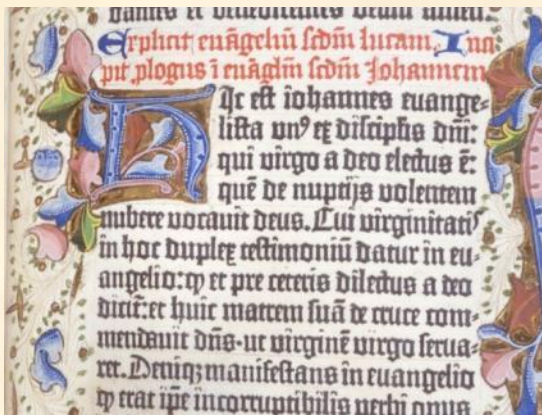 dantes et benedicentes deum amen.
Explicit euãgeliũ scdm̃ lucam. Inci
pit ꝓlogus ĩ euãgliũ scdm̃ Johannem
Hic est iohannes euange⸗
lista vnꝰ ex discipl̃is dñi:
qui virgo a deo electus ẽ:
quẽ de nuptijs volentem
nubere vocauit deus. Cui virginitatꝭ
in hoc duplex testimoniũ datur in eu⸗
angelio: ꝙ et pre ceteris dilectus a deo
dicit̃: et huic matrem suã de cruce com⸗
mendauit dñs. ut virginẽ virgo serua⸗
ret. Deniqꝫ manifestans in euangelio
ꝙ erat ip̃e incorruptibilis verbi opus